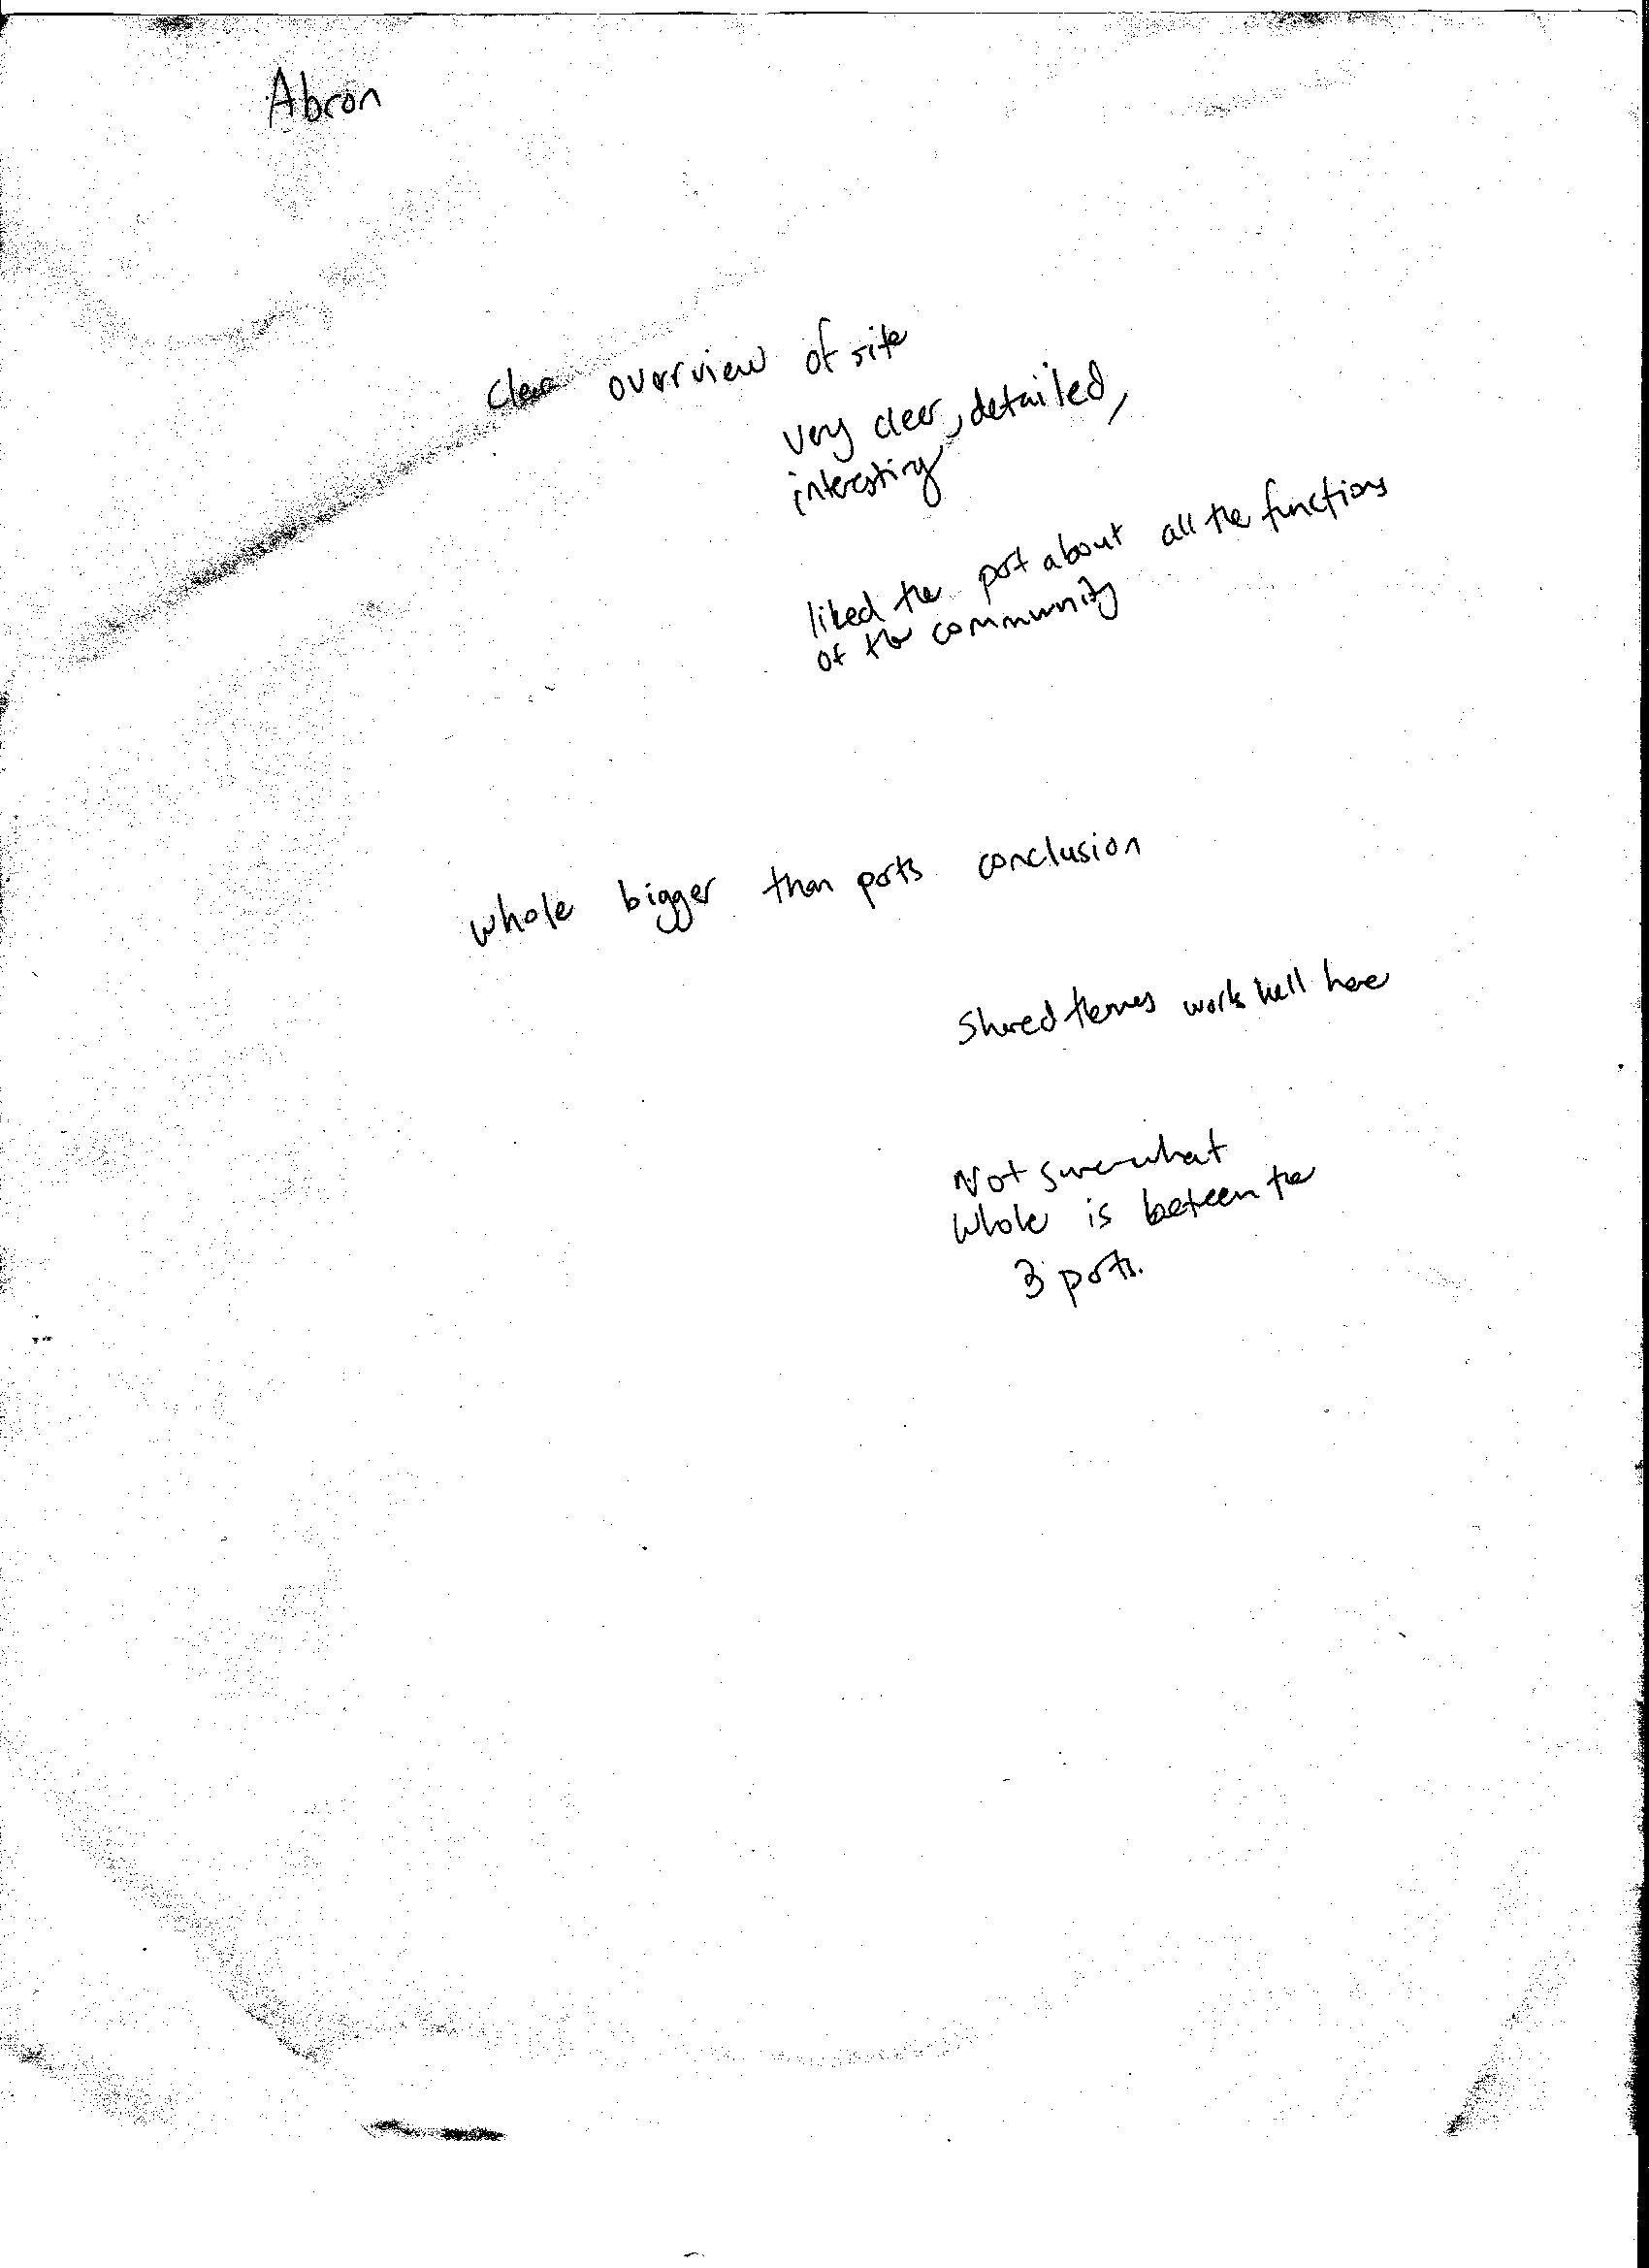 Abron
clear overview of site
very clear, detailed,
interesting
liked the part about all the functions
of the community
whole bigger than parts conclusion
Shared themes work well here
Not sure what
whole is beteen the
3 parts.